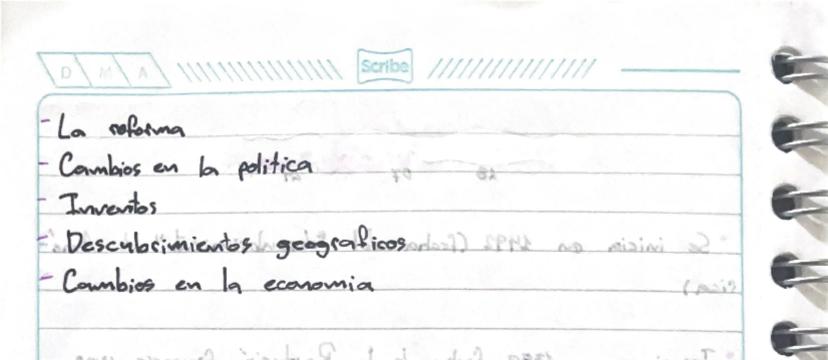 D M A
Scribe
- La reforma
- Cambios en la politica
- Inventos
- Descubrimientos geograficos
- Cambios en la economia